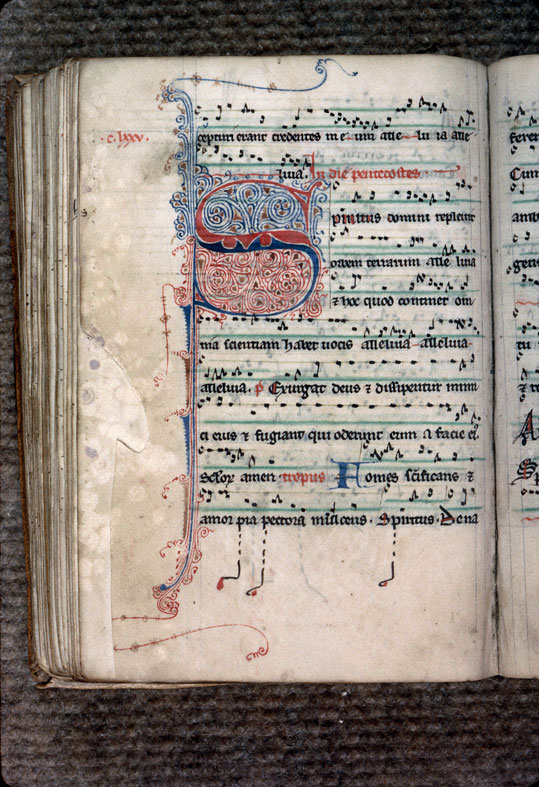 c. lxxv.
ceptim erant credentes in eum alle lu ia alle
luia. In die pentecostes
Spiritus domini repleuit
orbem terrarum alle luia
⁊ hoc quod continet om
nia scientiam habet uocis alleluia alleluia
alleluia. p Exurgat deus ⁊ dissipentur inimi
ci eius ⁊ fugiant qui oderunt eum a facie ei
Seculorum amen. tropus Fomes scificans ⁊
amor pia pectora Spiritus. Dena
feren
Cum
amb
gens
tu
⁊ re
A
Sp